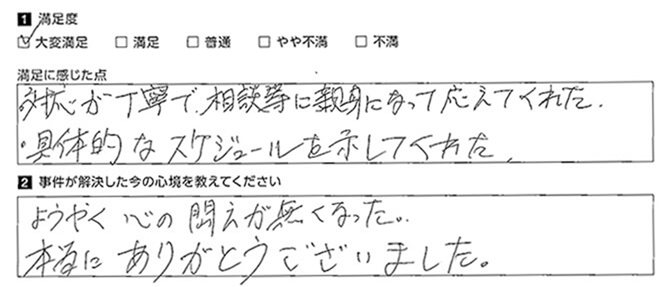 1 満足度
☑ 大変満足 □ 満足 □ 普通 □ やや不満 □ 不満
満足に感じた点
・対応が丁寧で、相談等に親身になって応えてくれた。
・具体的なスケジュールを示してくれた。
2 事件が解決した今の心境を教えてください
ようやく心の悶えが無くなった。
本当にありがとうございました。